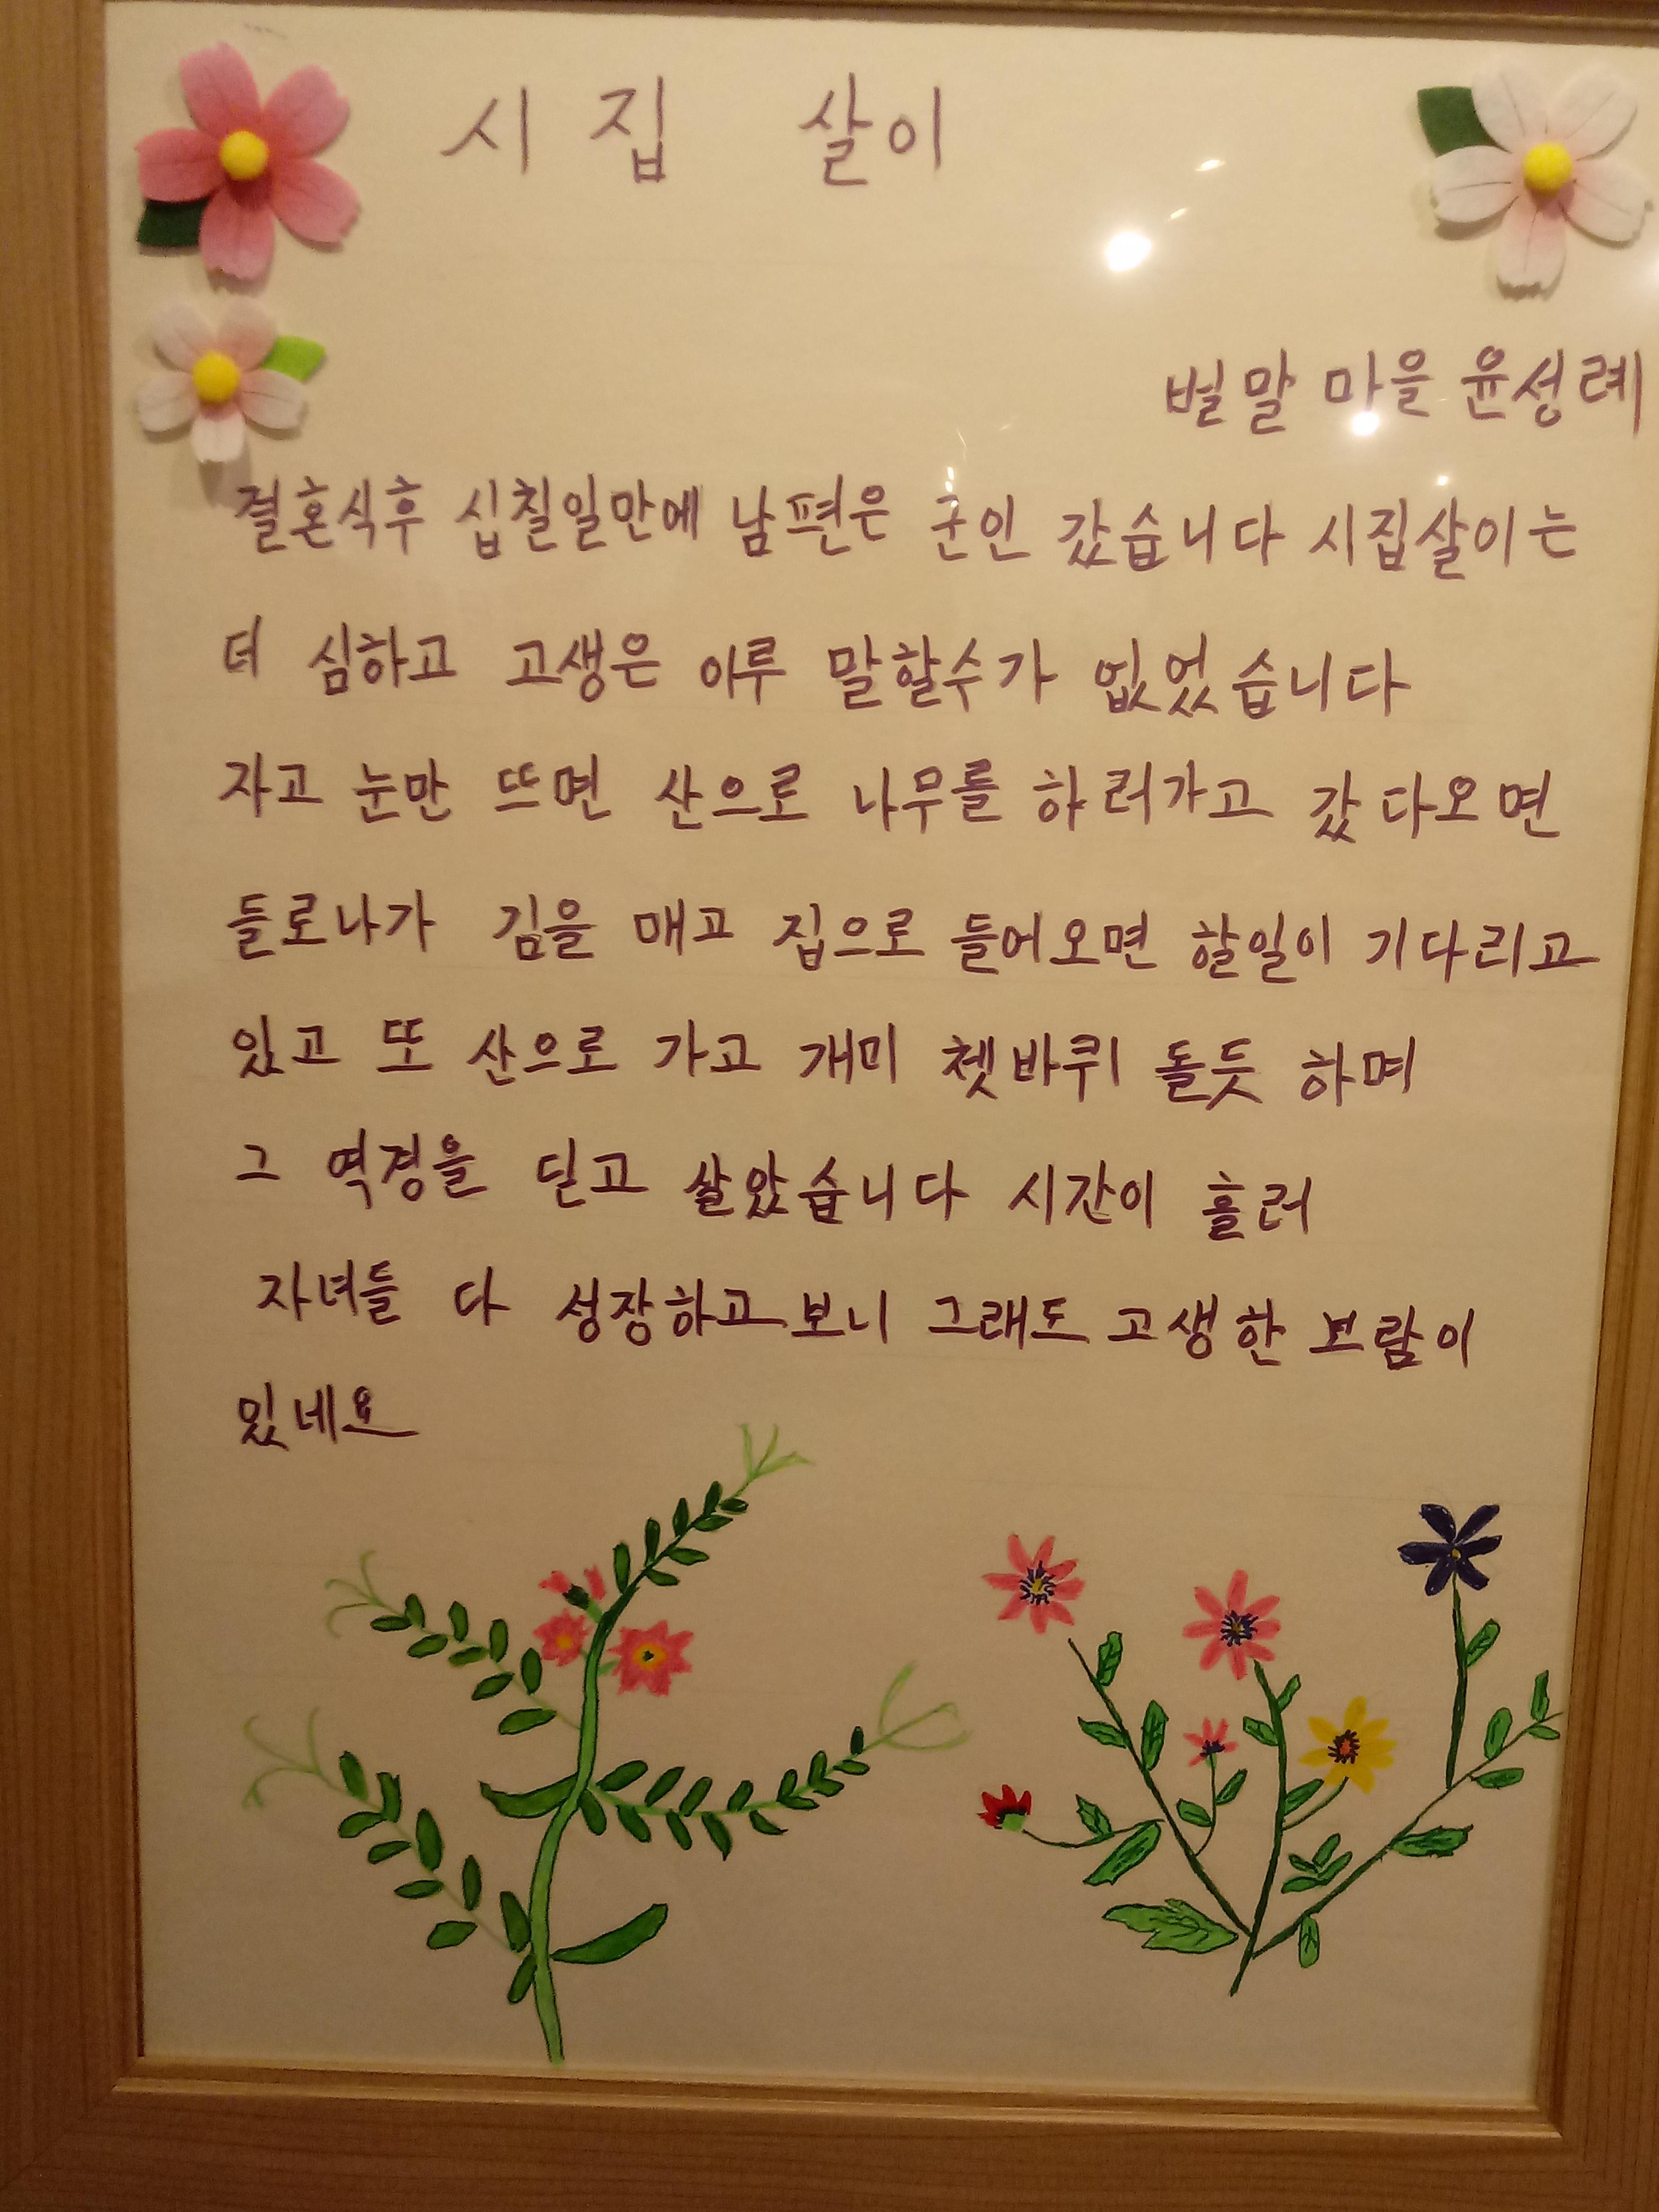 시집 살이
벌말 마을 윤성례
결혼식후 십칠일만에 남편은 군인 갔습니다 시집살이는
더 심하고 고생은 이루 말할수가 없었습니다
자고 눈만 뜨면 산으로 나무를 하러가고 갔다오면
들로나가 김을 매고 집으로 들어오면 할일이 기다리고
있고 또 산으로 가고 개미 쳇바퀴 돌듯 하며
그 역경을 딛고 살았습니다 시간이 흘러
자녀들 다 성장하고보니 그래도 고생한 보람이
있네요